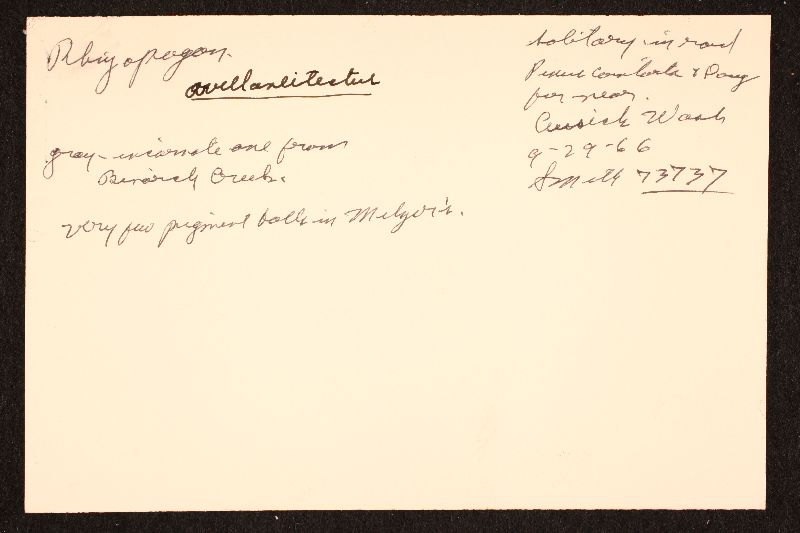 Rhizopogon
avellaneitectus
gray-incarnate one from
Binarch Creek.
very few pigment balls in Melzer's.
solitary in road
Pinus contorta & Doug
fir near.
Cusick Wash
9-29-66
Smith 73737